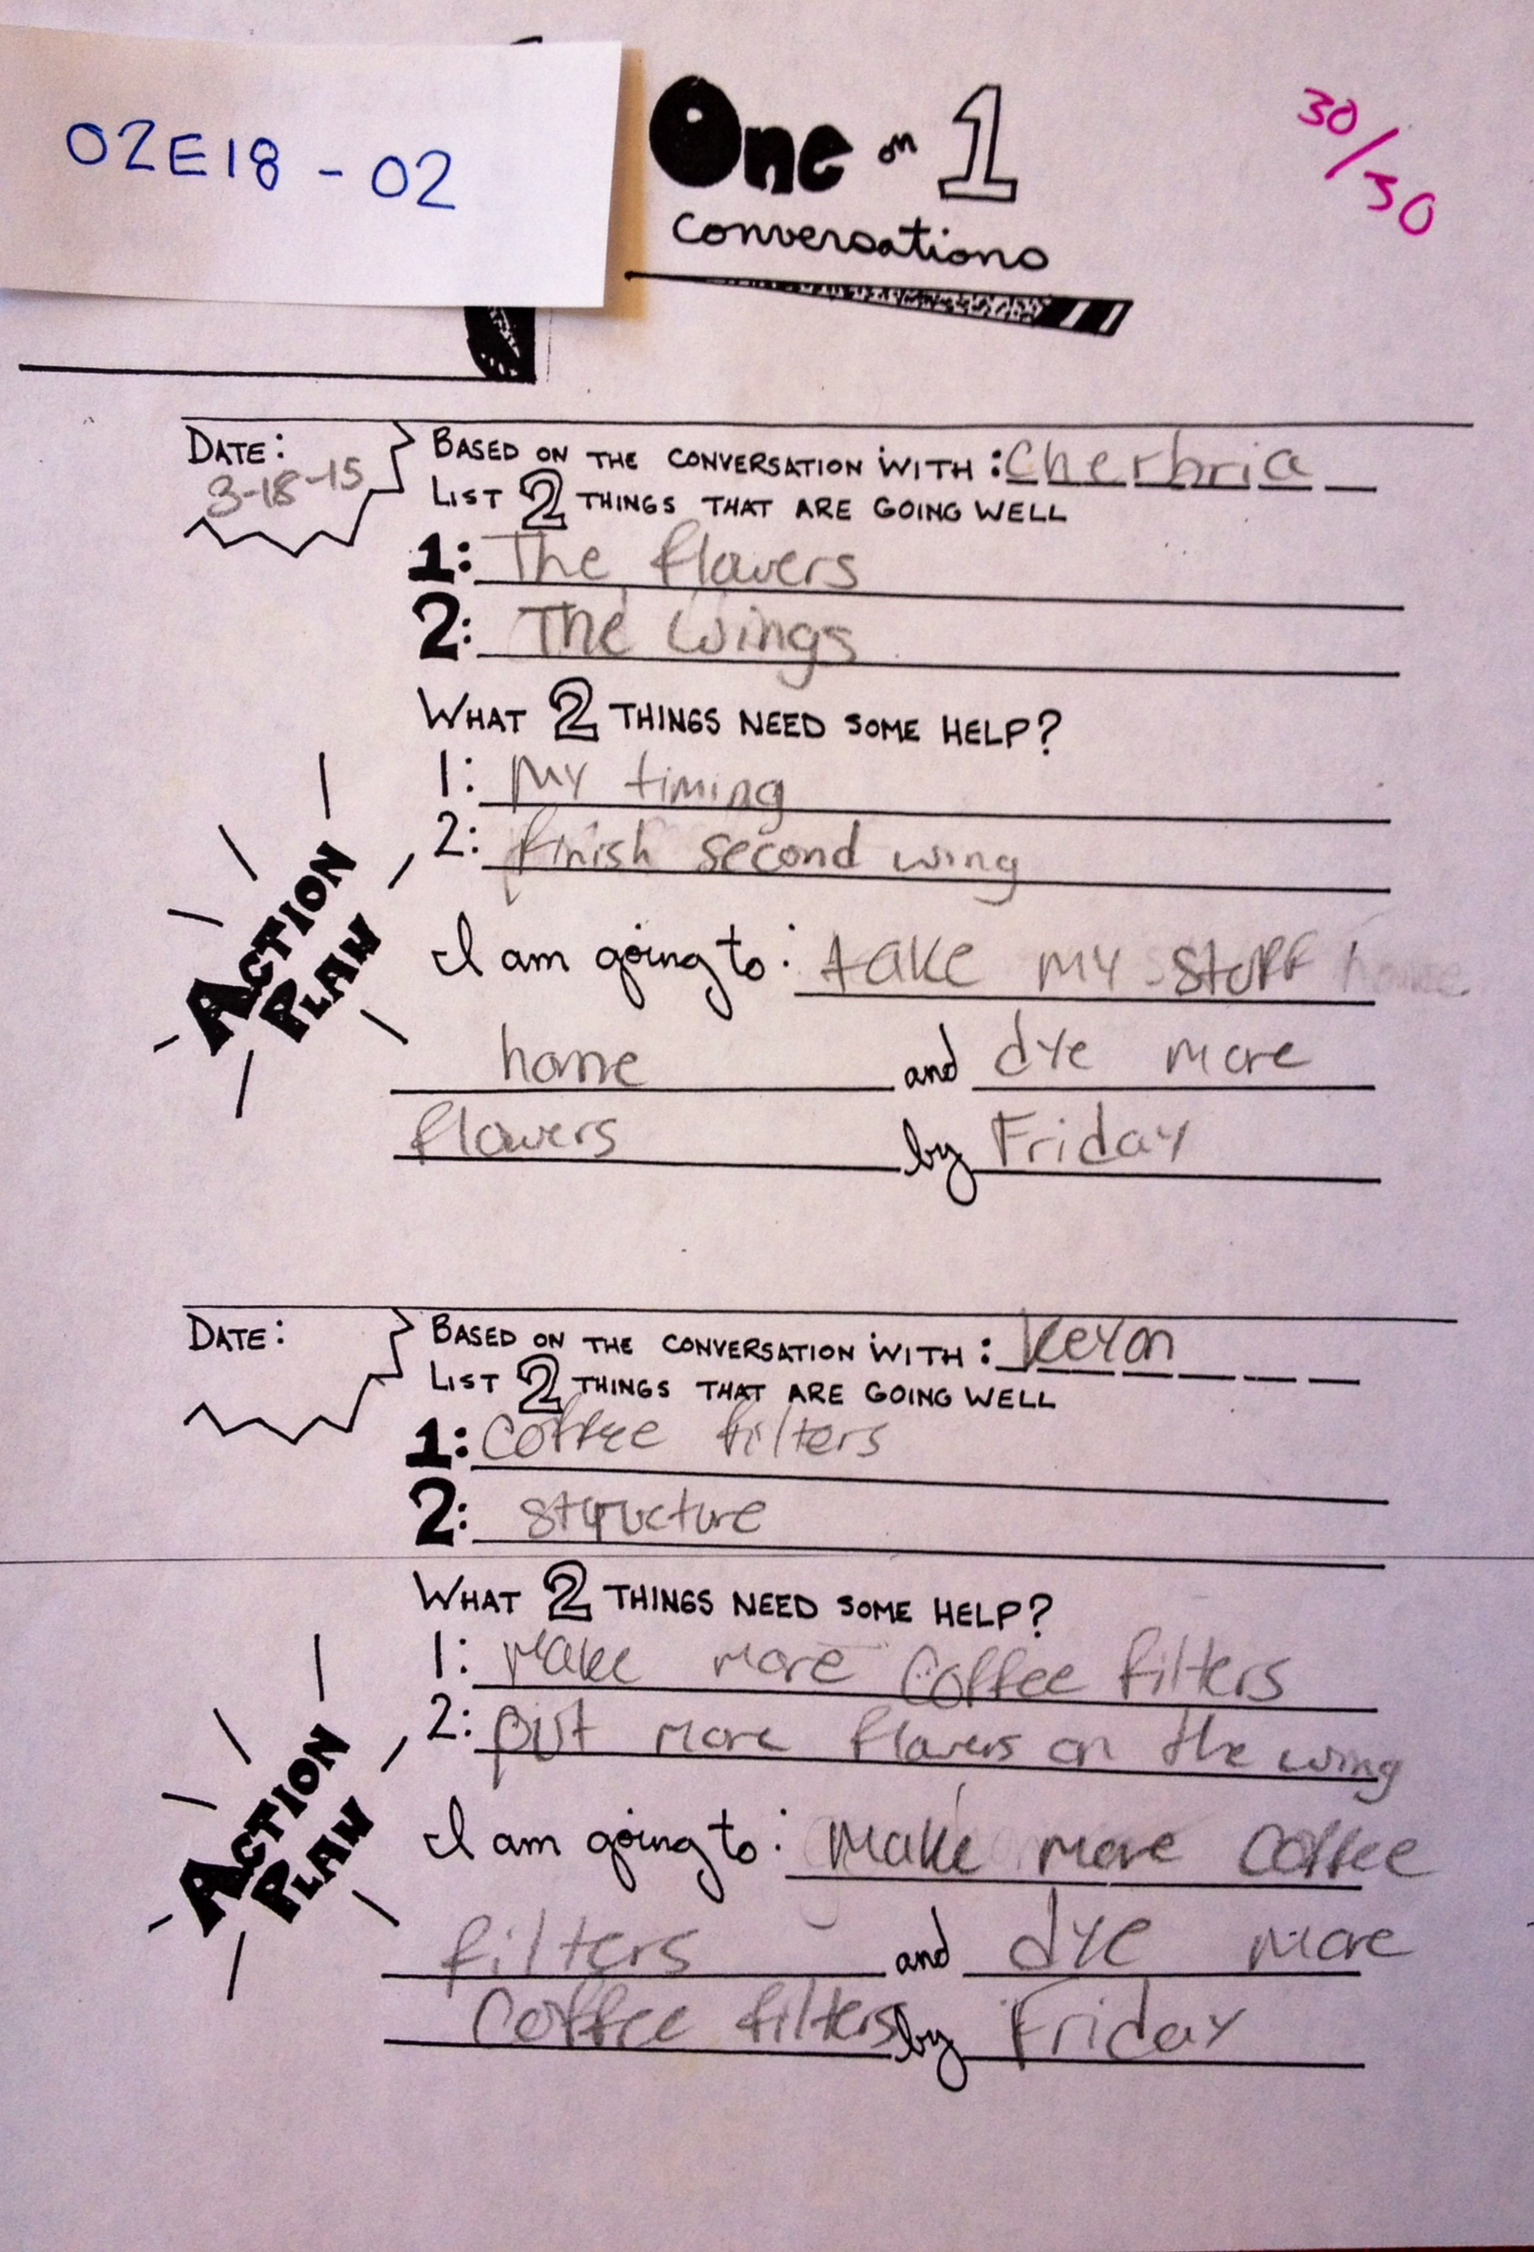 02E18 - 02
One on 1
Conversations
30/30
DATE:
3-18-15
BASED ON THE CONVERSATION WITH: Cherbria
LIST 2 THINGS THAT ARE GOING WELL
1: The flowers
2: The wings
WHAT 2 THINGS NEED SOME HELP?
1: My timing
2: finish second wing
ACTION PLAN
I am going to: take my stuff home
home and dye more
flowers by Friday
DATE:
BASED ON THE CONVERSATION WITH: Keyon
LIST 2 THINGS THAT ARE GOING WELL
1: Coffee filters
2: structure
WHAT 2 THINGS NEED SOME HELP?
1: Make more coffee filters
2: put more flowers on the wing
ACTION PLAN
I am going to: Make more coffee
filters and dye more
coffee filters by Friday